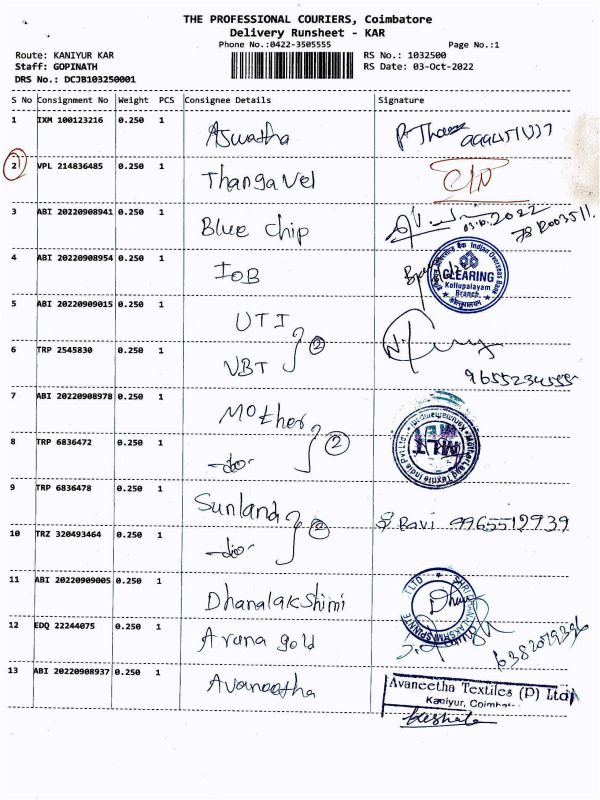 THE PROFESSIONAL COURIERS, Coimbatore
Delivery Runsheet - KAR
Phone No.:0422-3505555 Page No.:1
Route: KANIYUR KAR RS No.: 1032500
Staff: GOPINATH RS Date: 03-Oct-2022
DRS No.: DCJB103250001
S No Consignment No Weight PCS Consignee Details Signature
1 IXM 100123216 0.250 1 Aswatha
2 VPL 214836485 0.250 1 Thangavel
3 ABI 20220908941 0.250 1 Blue chip
4 ABI 20220908954 0.250 1 IOB CLEARING Kollupalayam Branch
5 ABI 20220909015 0.250 1 UTI
6 TRP 2545830 0.250 1 VBT 2
7 ABI 20220908978 0.250 1 Mother
8 TRP 6836472 0.250 1 -do- 2
9 TRP 6836478 0.250 1 Sunland Ravi 9965512939
10 TRZ 320493464 0.250 1 -do- 2
11 ABI 20220909005 0.250 1 Dhanalakshimi
12 EDQ 22244075 0.250 1 Aruna gold
13 ABI 20220908937 0.250 1 Avaneetha
Avaneetha Textiles (P) Ltd
Kaniyur,